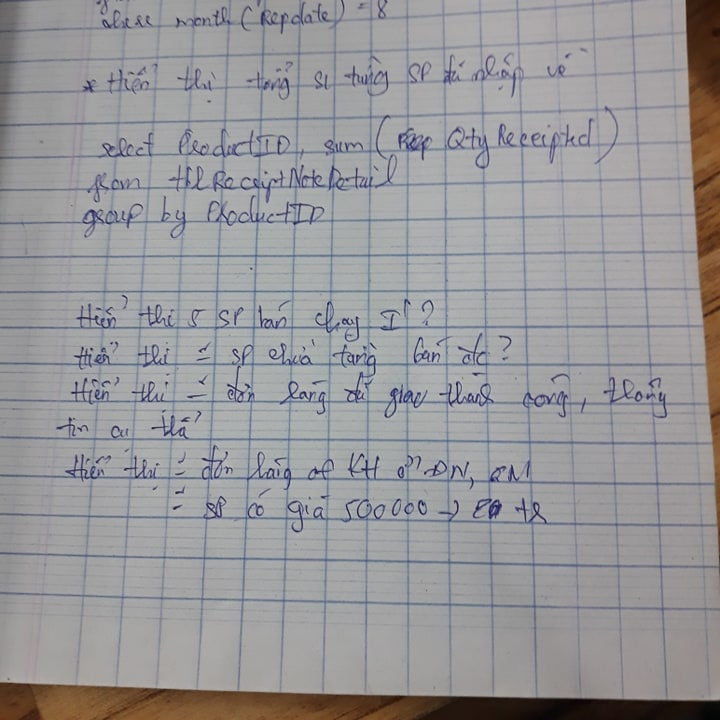 where month (Repdate) = 8
* Hiển thị tổng sl từng SP đã nhập về
select ProductID, sum ( QtyReceipted)
from tblReceiptNoteDetail
group by ProductID
Hiển thị 5 SP bán chạy I ?
Hiển thị = SP chưa từng bán đc ?
Hiển thị = đơn hàng đã giao thành công, thông
tin cụ thể
Hiển thị = đơn hàng of KH ở ĐN, QN
= SP có giá 500000 → tr